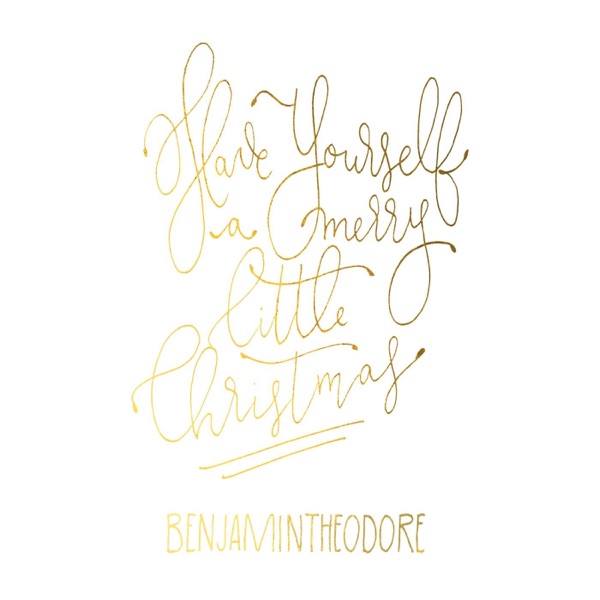 Have Yourself
a merry
little
Christmas
BENJAMINTHEODORE